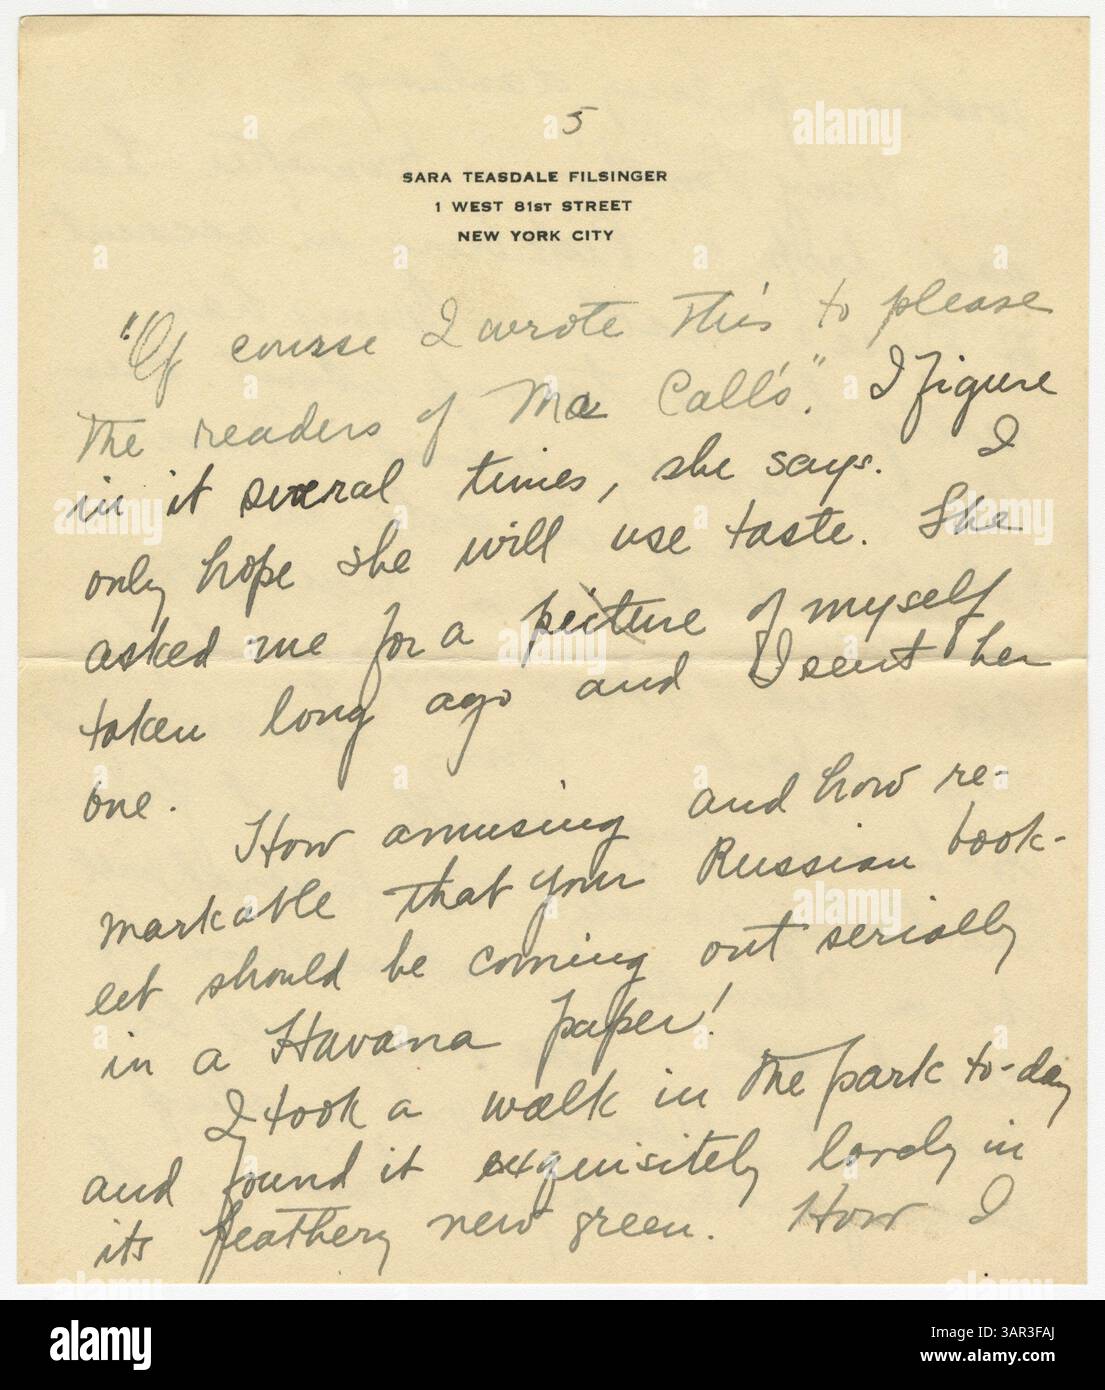 5
SARA TEASDALE FILSINGER
1 WEST 81ST STREET
NEW YORK CITY
"Of course I wrote this to please
the readers of Mc Call's." I figure
in it several times, she says. I
only hope she will use taste. She
asked me for a picture of myself
taken long ago and I sent her
one.
How amusing and how re-
markable that your Russian book-
let should be coming out serially
in a Havana paper!
I took a walk in the park to-day
and found it exquisitely lovely in
its feathery new green. How I
alamy
Image ID: 3AR3FAJ
www.alamy.com